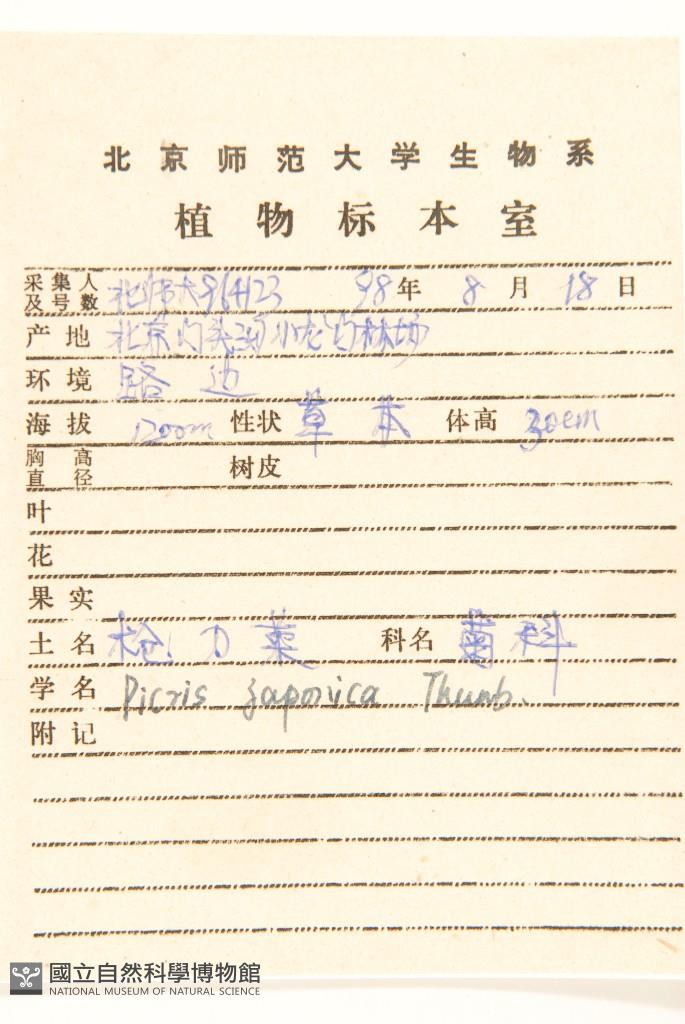 北京师范大学生物系
植物标本室
采集人及号数 北师大 98年8月18日
产地 北京门头沟小龙门林场
环境 路边
海拔 1200m 性状 草本 体高 30cm
胸高直径 树皮
叶
花
果实
土名 枪刀菜 科名 菊科
学名 Picris japonica Thunb.
附记
國立自然科學博物館
NATIONAL MUSEUM OF NATURAL SCIENCE